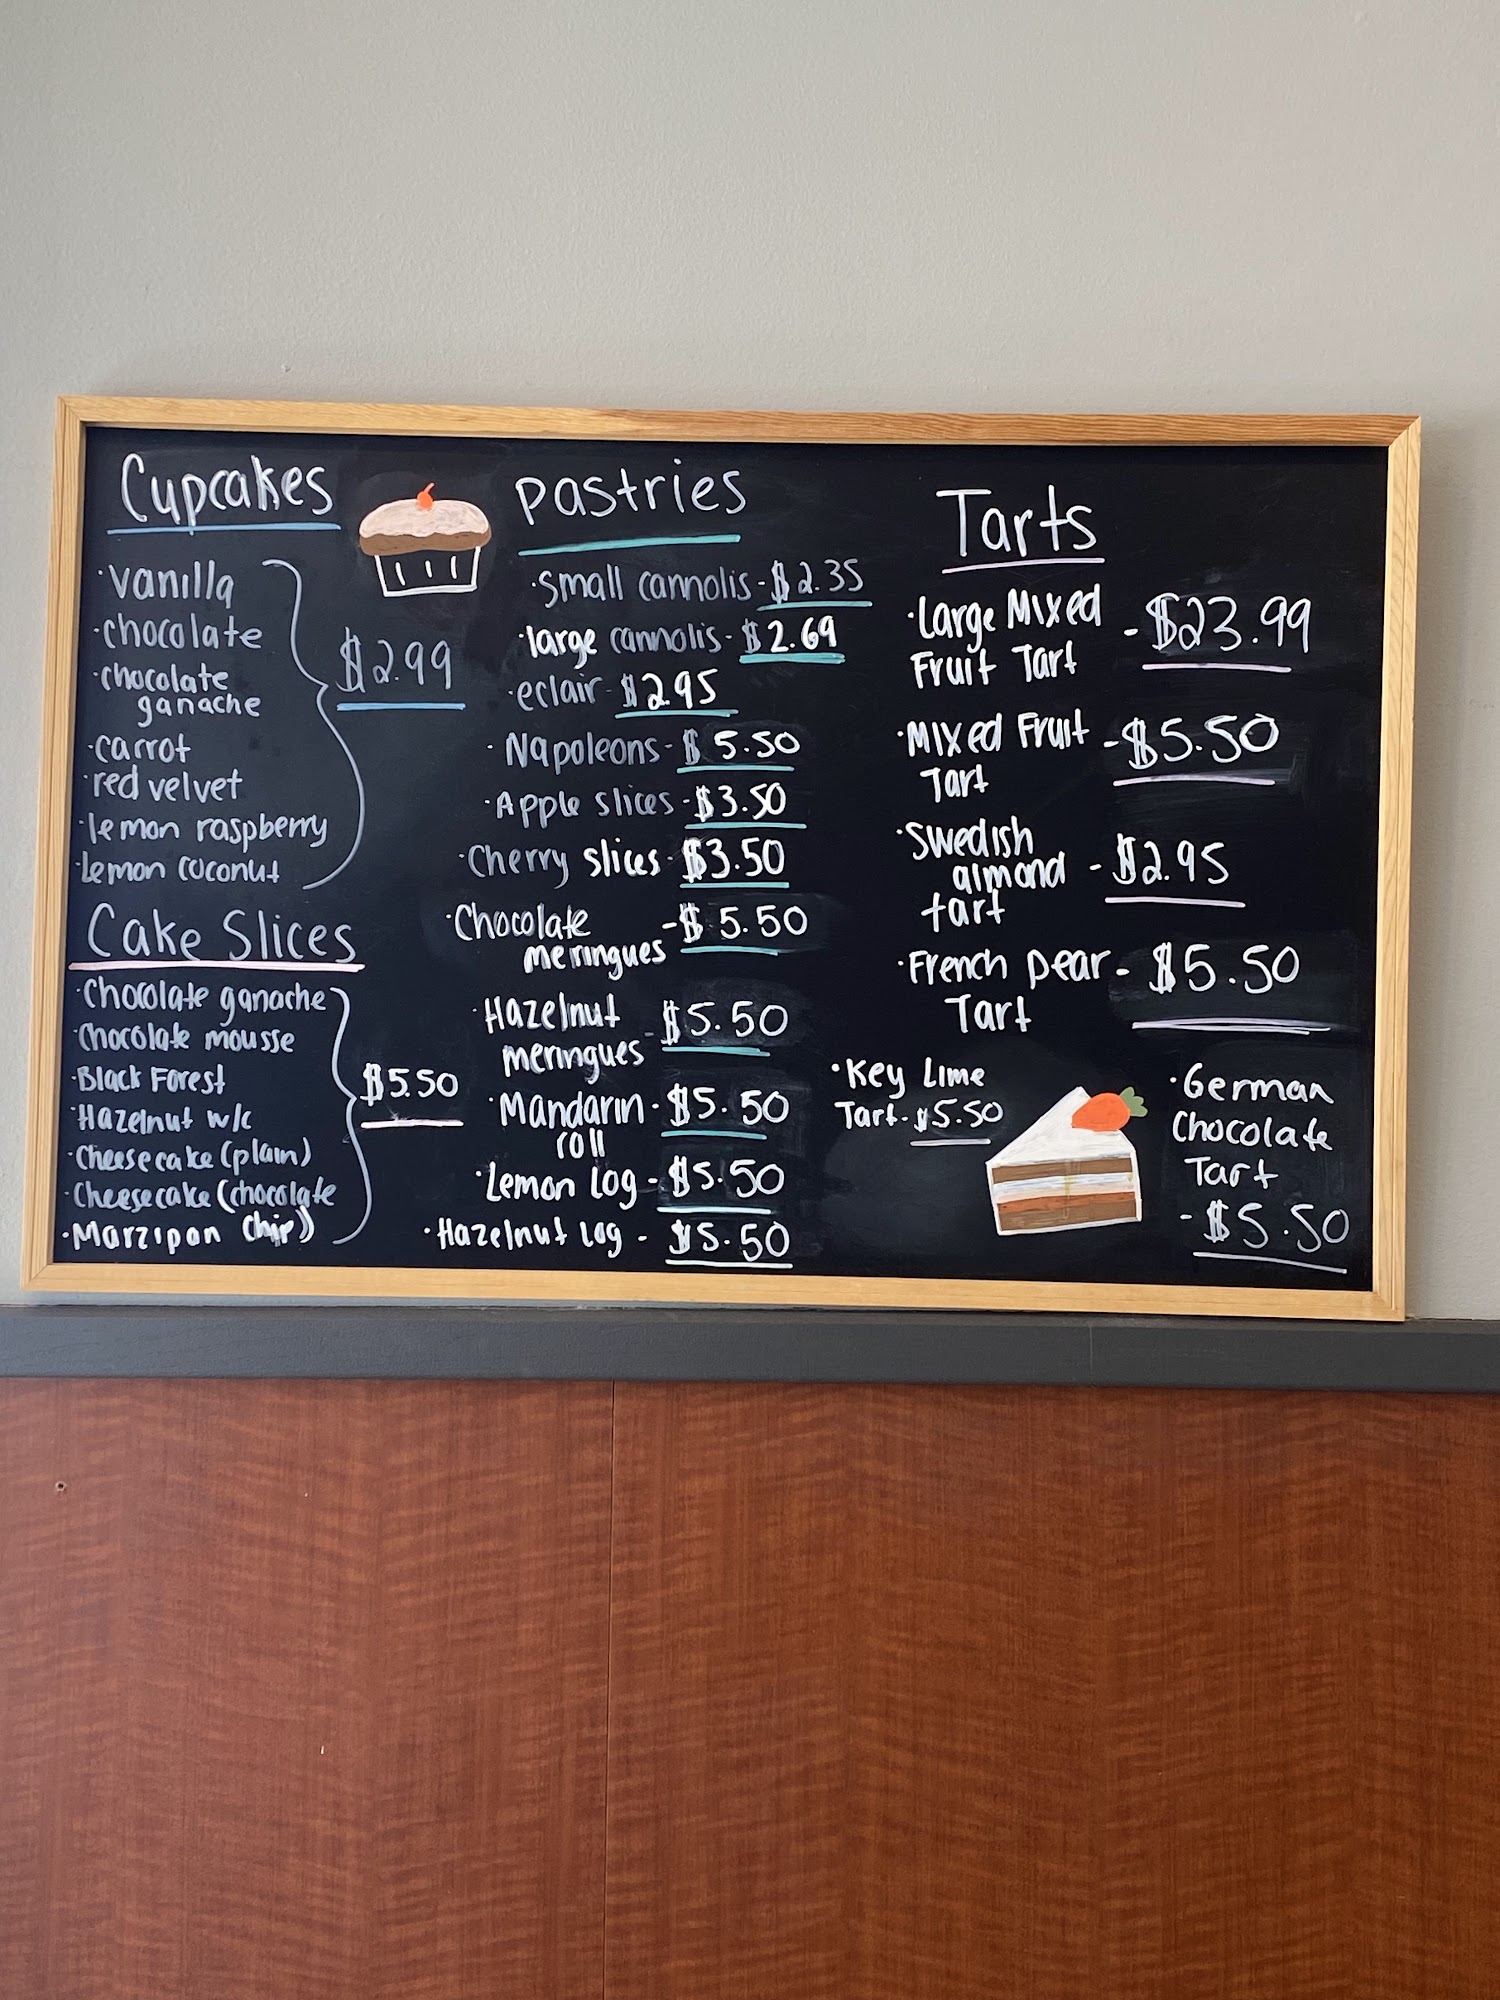 Cupcakes
·vanilla
·chocolate
·chocolate
ganache
·carrot
·red velvet
·lemon raspberry
·lemon coconut
$2.99
Cake Slices
·Chocolate ganache
·Chocolate mousse
·Black Forest
·Hazelnut w/c
·Cheesecake (plain)
·Cheesecake (chocolate
chip)
·Marzipan
$5.50
Pastries
·small cannolis - $2.35
·large cannolis - $2.69
·eclair - $2.95
·Napoleons - $5.50
·Apple slices - $3.50
·Cherry slices - $3.50
·Chocolate
meringues - $5.50
·Hazelnut
meringues - $5.50
·Mandarin - $5.50
roll
·Lemon Log - $5.50
·Hazelnut Log - $5.50
Tarts
·Large Mixed
Fruit Tart - $23.99
·Mixed Fruit
Tart - $5.50
·Swedish
almond - $2.95
tart
·French pear - $5.50
Tart
·Key Lime
Tart - $5.50
·German
Chocolate
Tart
- $5.50